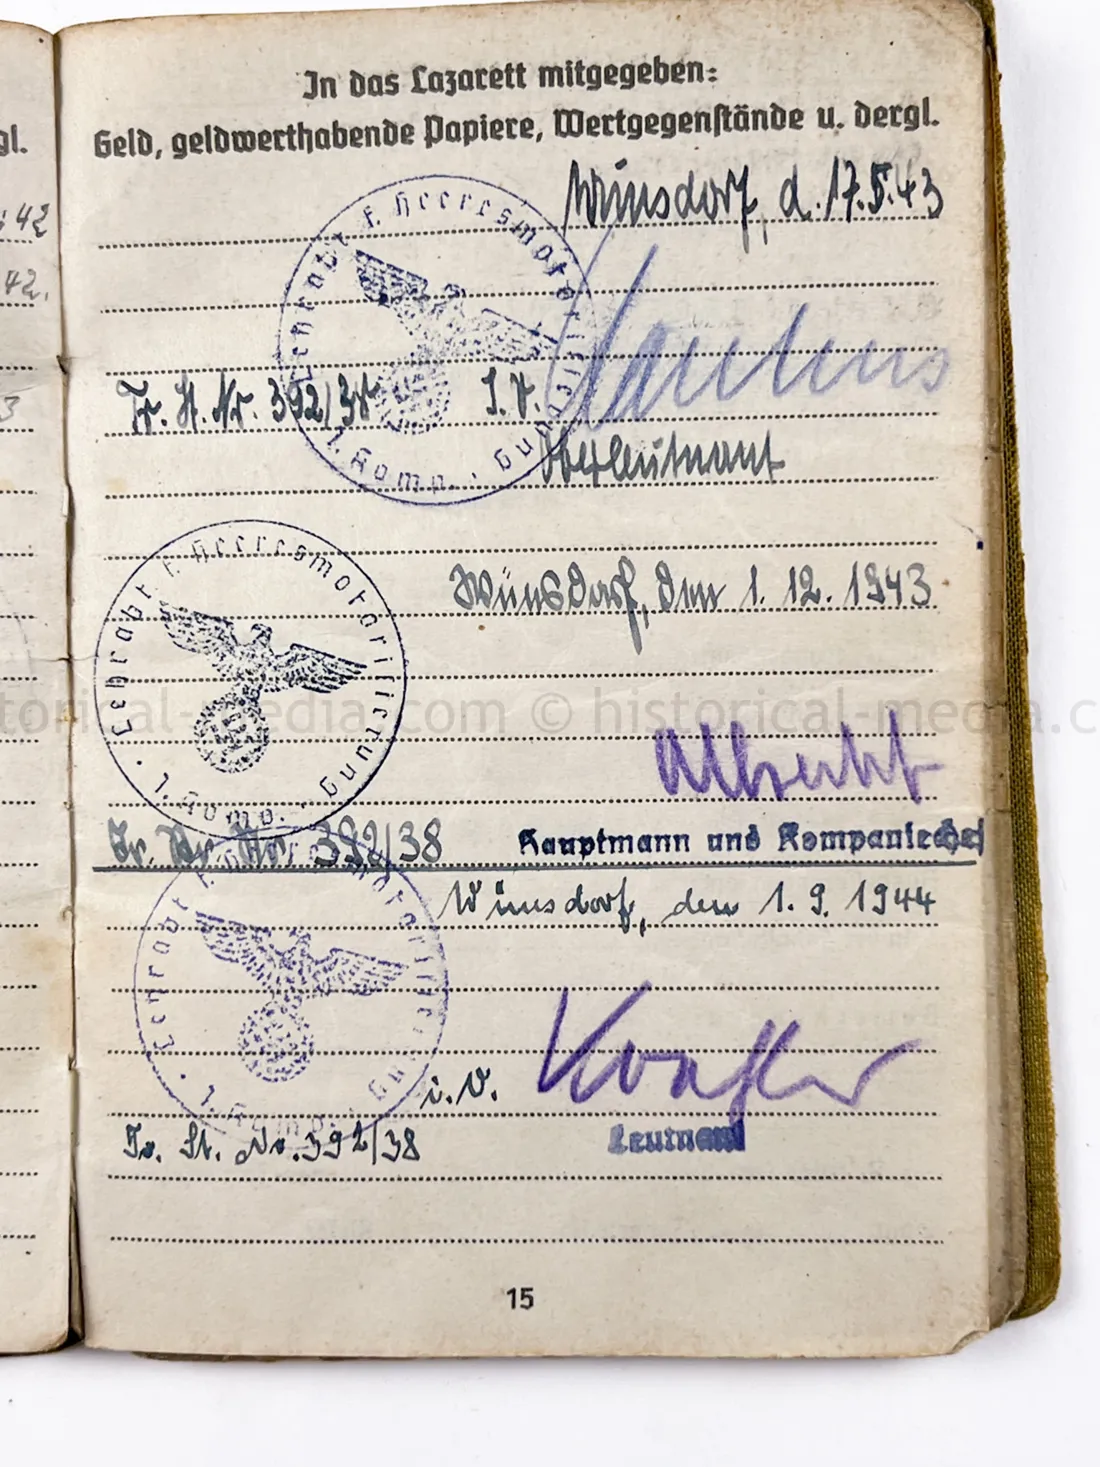 In das Lazarett mitgegeben:
Geld, geldwerthabende Papiere, Wertgegenstände u. dergl.
gl.
42
42.
3
Wünsdorf, d. 17.5.43
Lehrabt. f. Heeresmotorisierung
1. Komp.
Tr. St. Nr. 392/38 I.V.
Oberleutnant
Wünsdorf, den 1. 12. 1943
Lehrabt. f. Heeresmotorisierung
1. Komp.
historical-media.com © historical-media.c
Albrecht
Tr. Nr. 392/38 Hauptmann und Kompaniechef
Wünsdorf, den 1. 9. 1944
Lehrabt. f. Heeresmotorisierung
1. Komp.
i. V.
Tr. St. Nr. 392/38 Leutnant
15